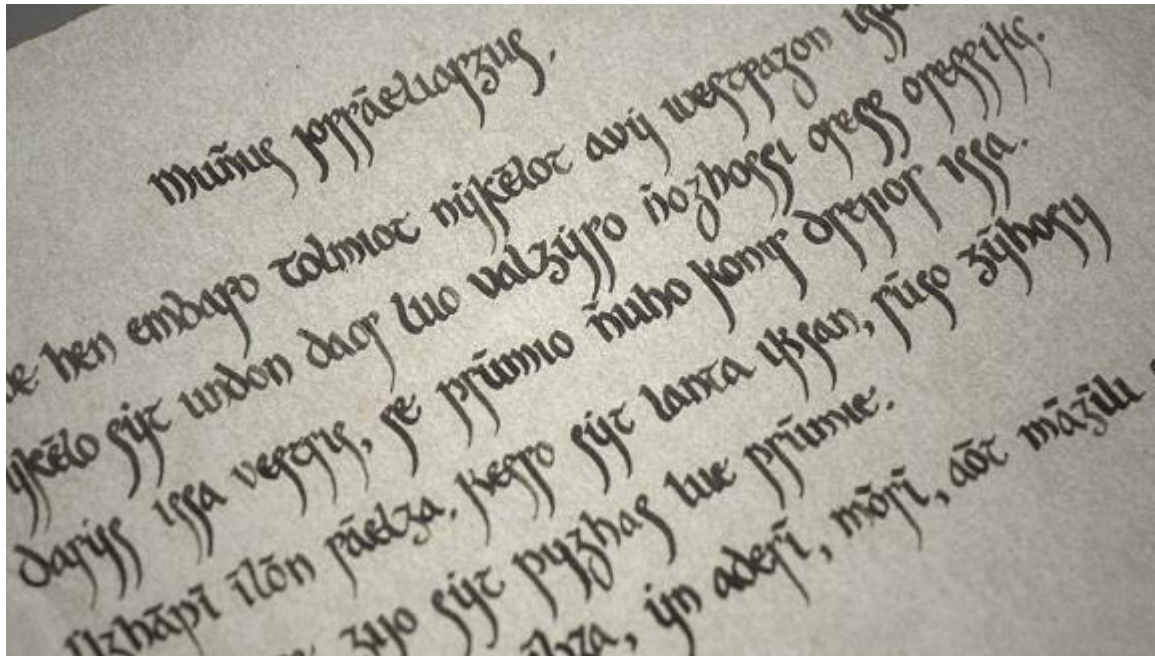 Muñus jorrāeliarzus,
hen embaro tolmiot nykēlot avy westrazon
sȳt undon daor luo valzȳro ñozhossi qress qressiks.
issa vestris, se prūmio ñuho konir drejior issa.
īlōn rāelza. Kesso sȳt lanta iksan, rūso zȳhosy
zijo sȳt pyzhas lue prūmie.
yn aderī, mōrī, aōt māzilu